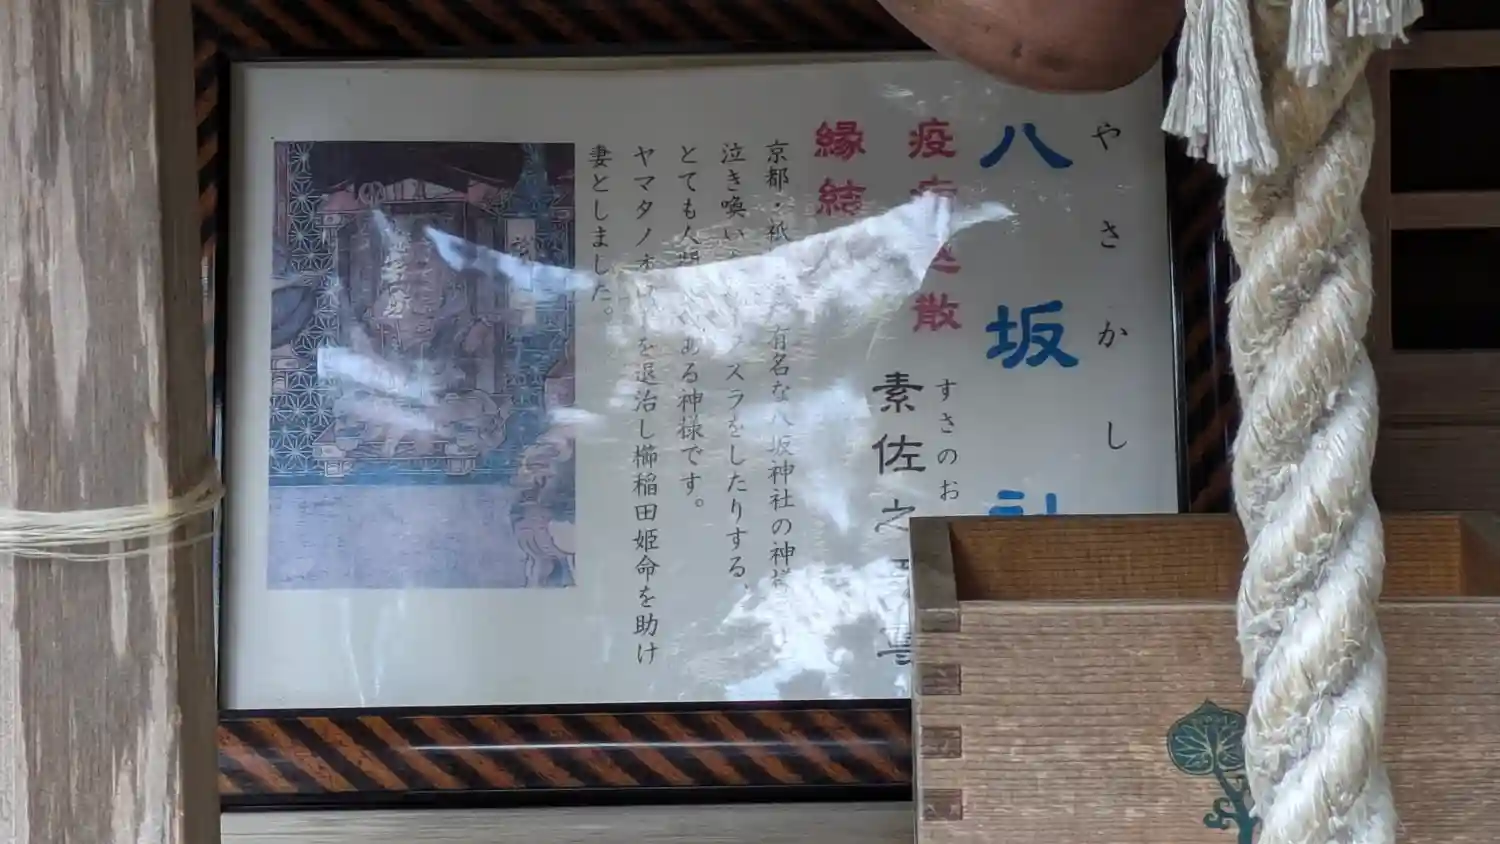 やさかし
八坂社
疫病退散
すさのお
素佐之
縁結
京都・祇 有名な八坂神社の神様
泣き喚い スラをしたりする、
とても人間 ある神様です。
ヤマタノオ を退治し櫛稲田姫命を助け
妻としました。